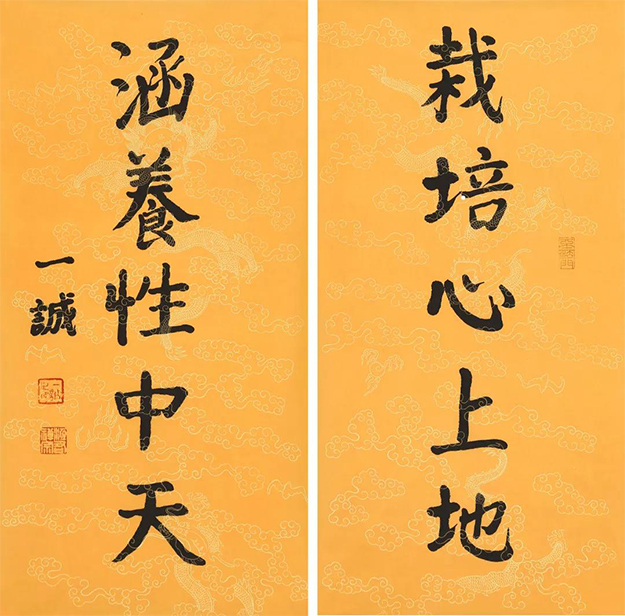 栽培心上地
涵養性中天
一誠